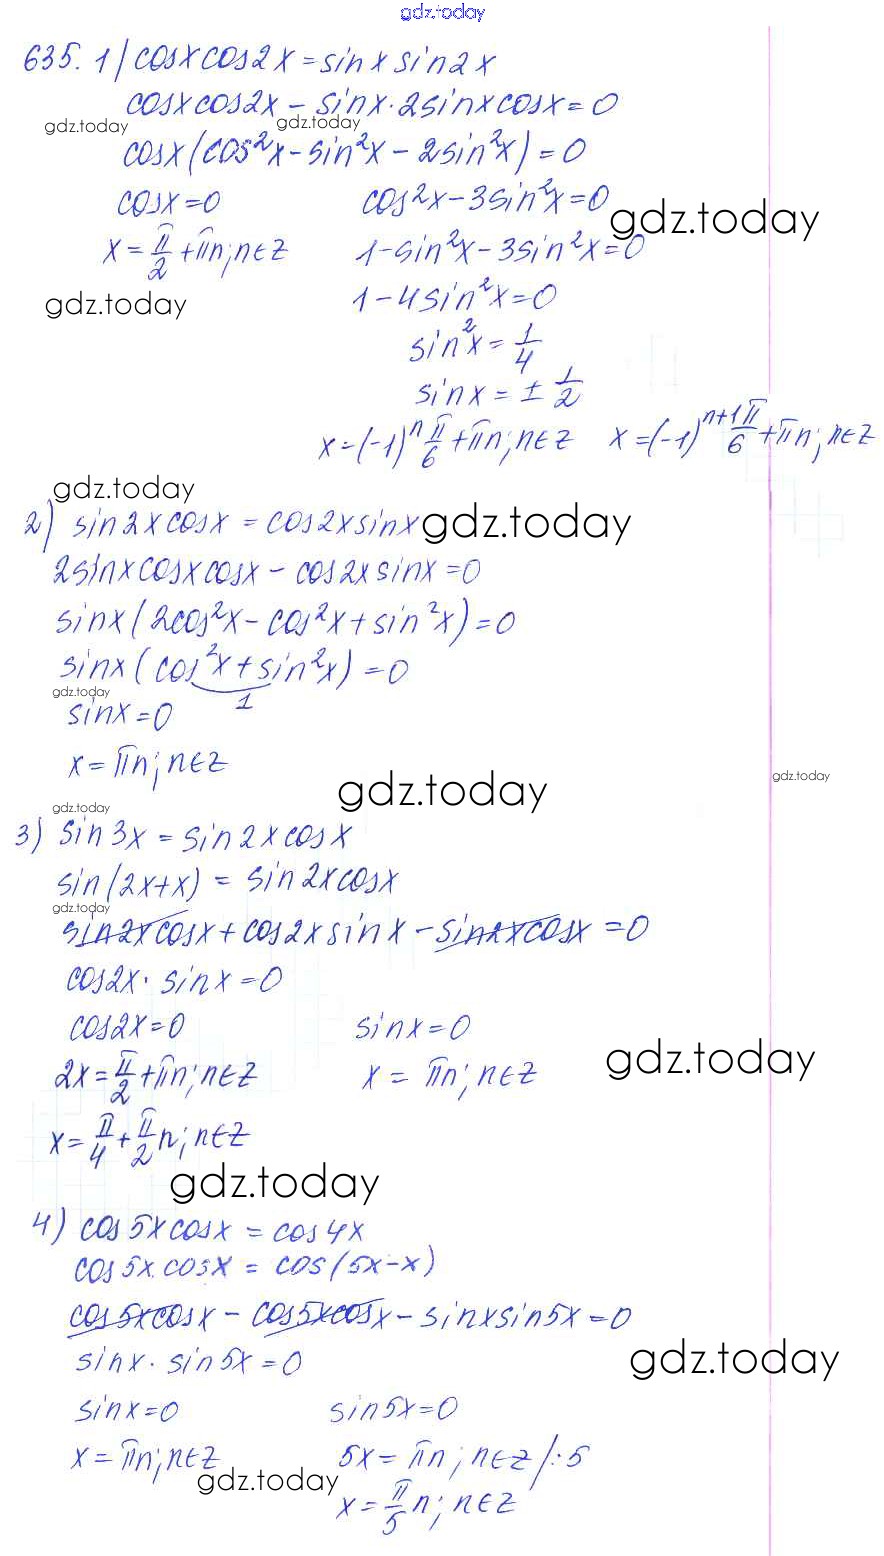 gdz.today
635. 1) cosxcos2x = sinx sin2x
cosxcos2x - sinx·2sinxcosx = 0
gdz.today gdz.today
cosx(cos²x - sin²x - 2sin²x) = 0
cosx = 0 cos²x - 3sin²x = 0
gdz.today
x = π/2 + πn; n∈Z 1 - sin²x - 3sin²x = 0
gdz.today 1 - 4sin²x = 0
sin²x = 1/4
sinx = ± 1/2
x = (-1)ⁿ π/6 + πn; n∈Z x = (-1)ⁿ⁺¹ π/6 + πn; n∈Z
gdz.today
2) sin2xcosx = cos2xsinx gdz.today
2sinxcosxcosx - cos2xsinx = 0
sinx(2cos²x - cos²x + sin²x) = 0
sinx(cos²x + sin²x) = 0
gdz.today
1
sinx = 0
x = πn; n∈Z
gdz.today gdz.today
gdz.today
3) sin3x = sin2xcosx
sin(2x+x) = sin2xcosx
gdz.today
sin2xcosx + cos2xsinx - sin2xcosx = 0
cos2x · sinx = 0
cos2x = 0 sinx = 0
gdz.today
2x = π/2 + πn; n∈Z x = πn; n∈Z
x = π/4 + π/2 n; n∈Z
gdz.today
4) cos5xcosx = cos4x
cos5x cosx = cos(5x-x)
cos5xcosx - cos5xcosx - sinxsin5x = 0
sinx · sin5x = 0
gdz.today
sinx = 0 sin5x = 0
x = πn; n∈Z 5x = πn; n∈Z /:5
gdz.today
x = π/5 n; n∈Z